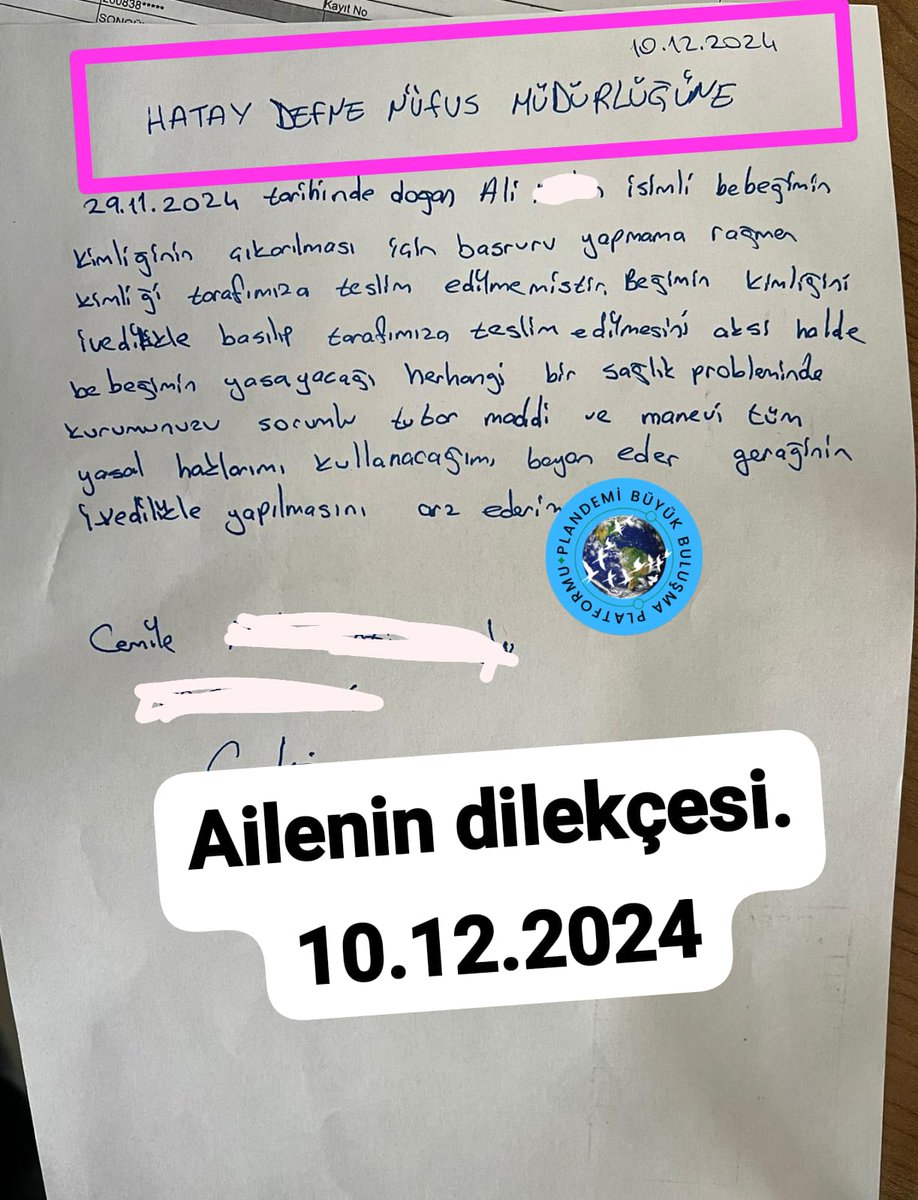 200838*****
Kayıt No
10.12.2024
HATAY DEFNE NÜFUS MÜDÜRLÜĞÜNE
29.11.2024 tarihinde doğan Ali isimli bebeğimin
kimliğinin çıkarılması için basruru yapmama rağmen
kimliği tarafımıza teslim edilmemistir. Beğimin kimliğini
ivedilikle basılıp tarafımıza teslim edilmesini aksi halde
bebeğimin yasayacağı herhangi bir sağlık probleminde
kurumunuzu sorumlu tutar maddi ve manevi tüm
yasal haklarımı kullanacağımı bayan eder gerağinin
ivedilikle yapılmasını arz ederim
PLANDEMİ BÜYÜK BULUŞMA PLATFORMU
Cemile
Ailenin dilekçesi.
10.12.2024